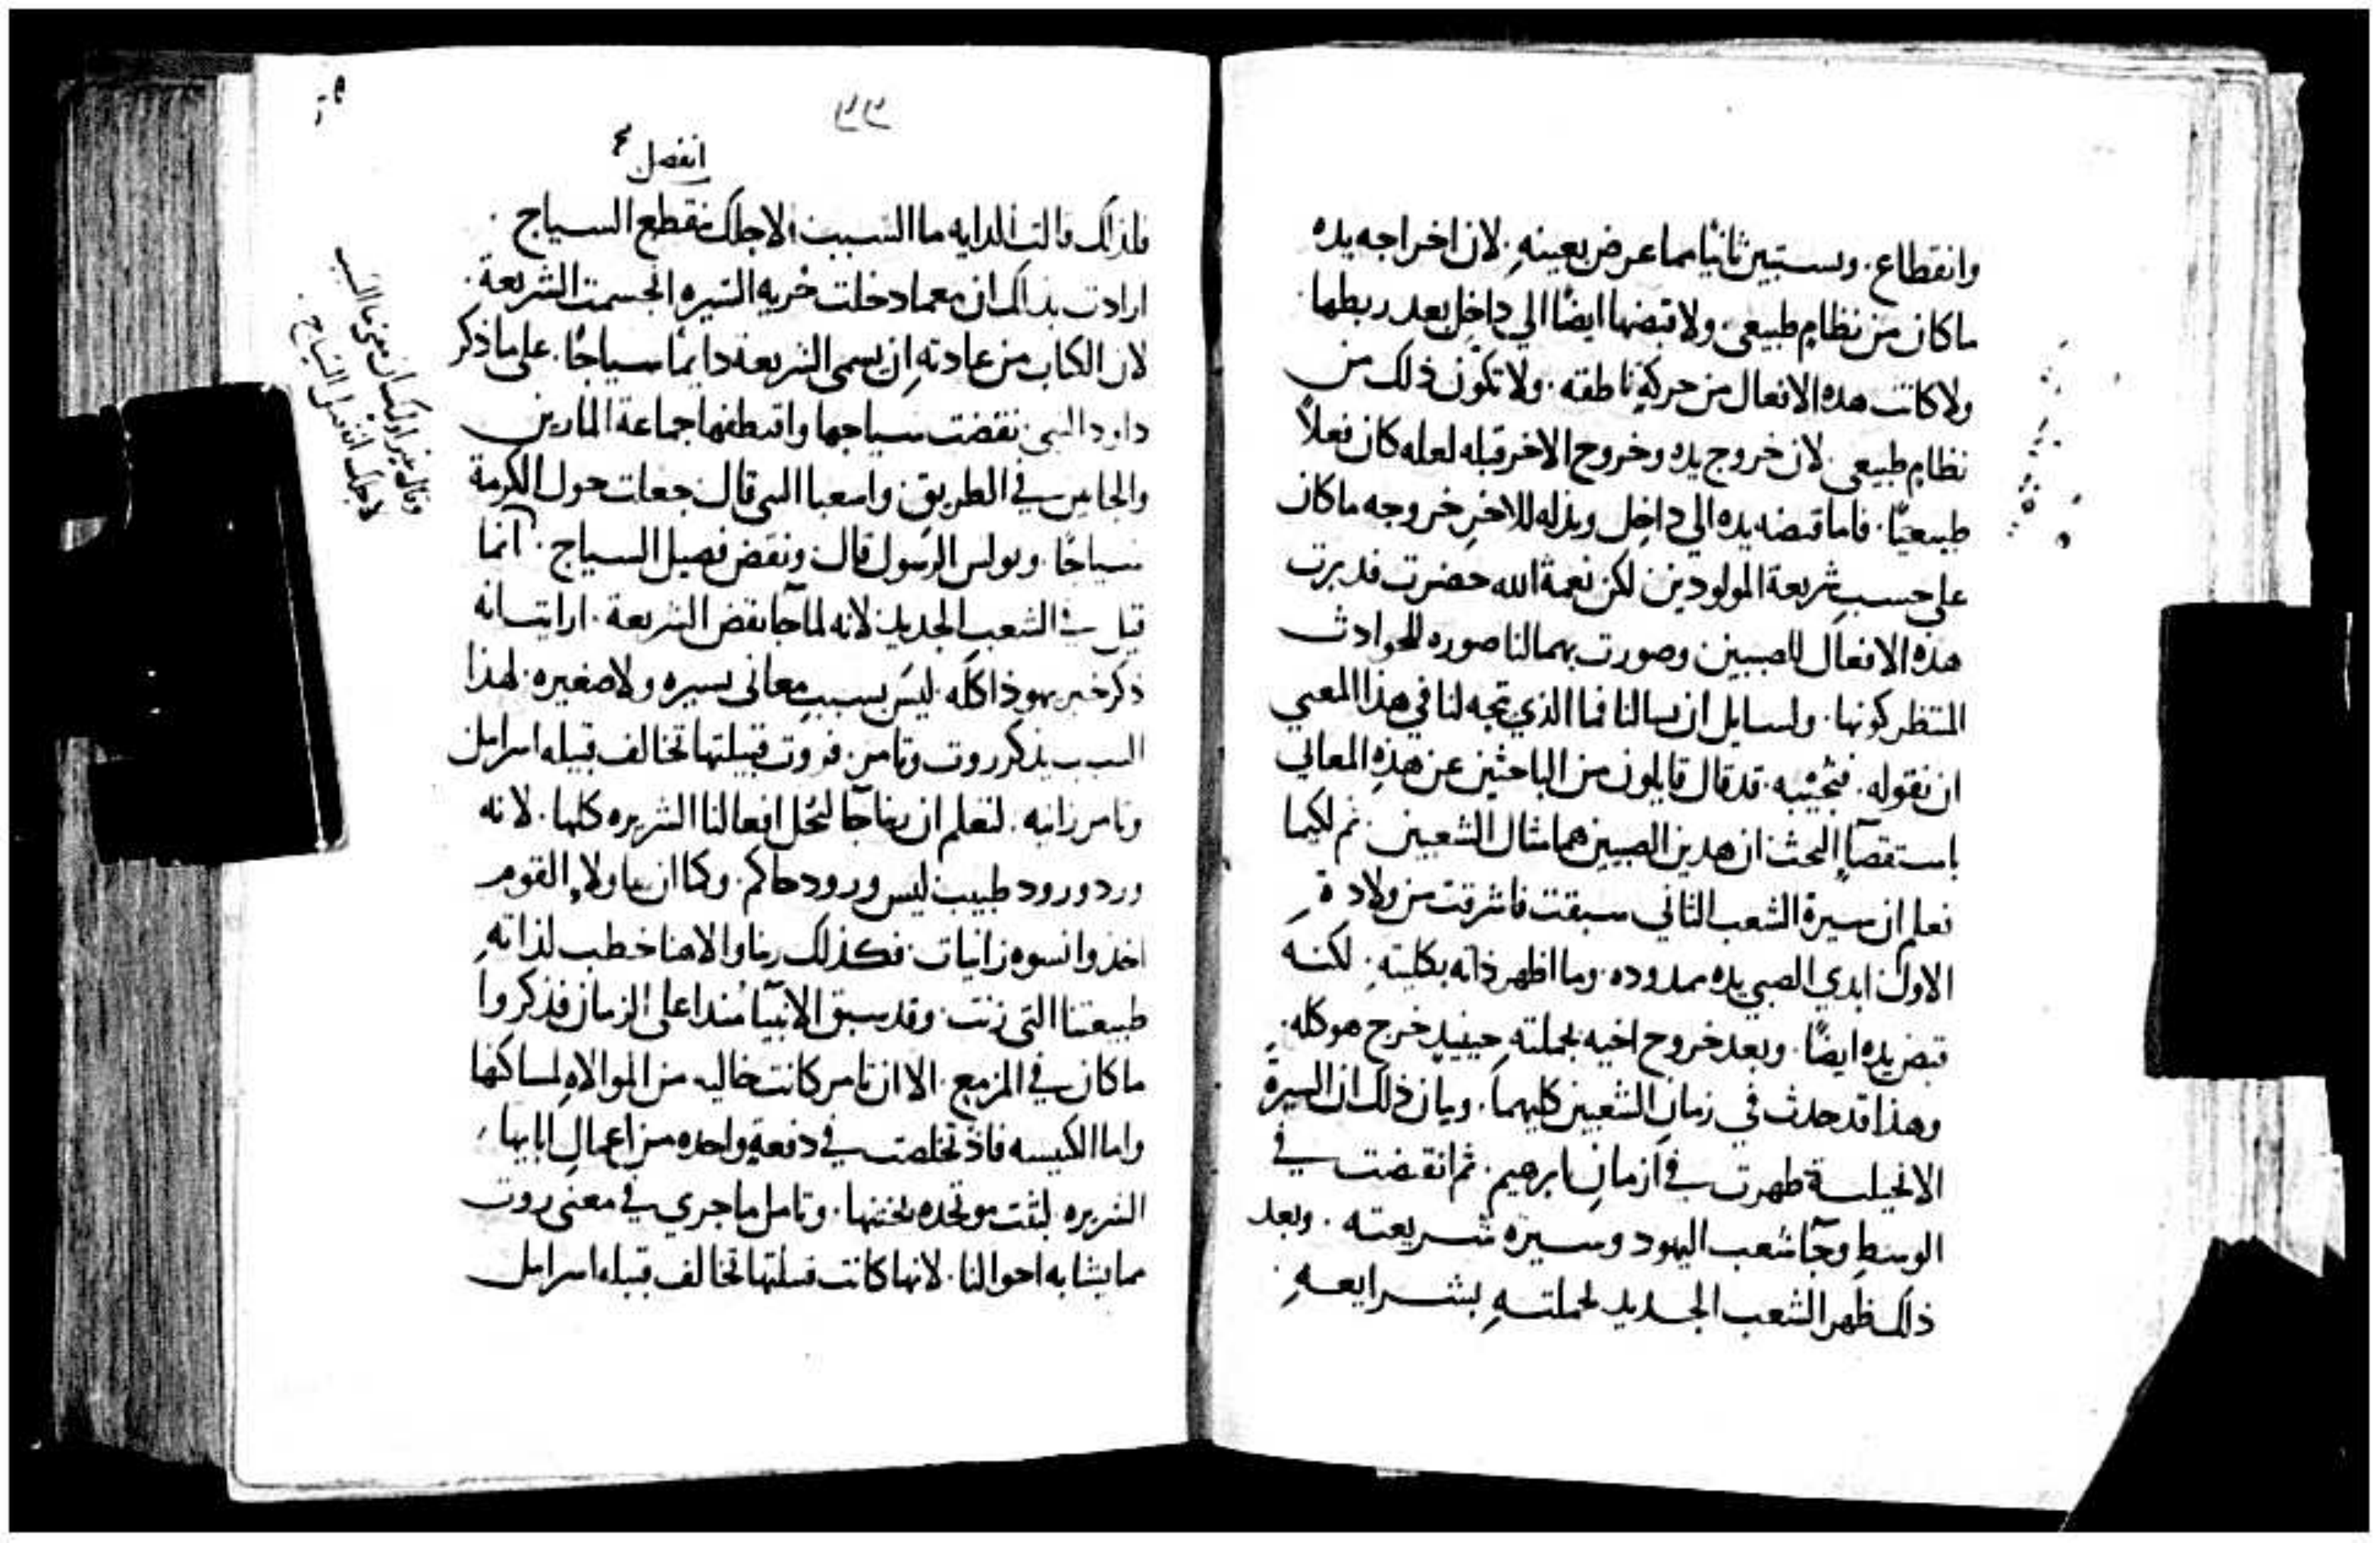 وانقطاع. وسستبين ثانيًا مما عرض بعينهِ. لان اخراجه يده
ماكان من نظامٍ طبيعي. ولا قبضها ايضًا الي داخِل بعد ربطها.
ولا كانت هذه الافعال من حركةٍ ناطقه. ولا تكوّن ذلك من
نظامٍ طبيعي. لان خروج يده وخروج الاخر قبله لعله كان فعلاً
طبيعيًا. فاما قبضه يده الي داخِل وبذله للاخرِ خروجه ماكان
علي حسب شريعة المولودين. لكن نعمة الله حضرت فدبرت
هذه الافعال للصبيين وصورت بهما لنا صوره للحوادث
المنتظر كونها. ولسايل ان يسالنا فما الذي تجه لنا في هذا المعني
ان نقوله. فنُجيبه. قد قال قايلون من الباحثين عن هذِه المعاني
باستقصآءِ البحث ان هذين الصبيين هما مثال الشعبين. ثم لكيما
نعلم ان سيرة الشعب الثاني سبقت فاشرقت من ولادةِ
الاول. ابدي الصبي يده ممدوده. وما اظهر ذاته بكليتهِ. لكنه
قبض يده ايضًا. وبعد خروج اخيه بجملتهِ حينيذٍ خرج هو كله.
وهذا قد حدث في زمانِ الشعبين كليهما. وبيان ذلك ان السيرة
الانجيلية ظهرت في ازمانِ ابرهيم. ثم انقضت في
الوسطِ وجآ شعب اليهود وسيرة شريعته. وبعد
ذاك ظهر الشعب الجديد بجملتهِ بشرايعهِ.
٢٢٣
انفصل
فلذاك قالت الدايه ما السبب لاجلك نقطع السياج.
ارادت بذاك ان معما دخلت حُريه السيره انحسمت الشريعة.
لان الكتاب من عادتهِ ان يسمي الشريعة دايمًا سياجًا. علي ما ذكر
داود النبي. نقضت سياجها واقتطفها جماعة المارين
في الطريق. واشعيا النبي قال. جعلت حول الكرمة
سياجًا. وبولس الرسول قال. ونقض فصيل السياج. انما
قيل في الشعب الجديد. لانه لما جآ نقض الشريعة. ارايت انه
ذكر خبر يهوذا كله. ليس بسبب معاني يسيره ولا صغيره. لهذا
السبب يذكر روت وتامر. فروت قبيلتها تخالف قبيله اسرايل
وتامر زانيه. لتعلم ان ربنا جآ ليحُل افعالنا الشريره كلها. لانه
ورد ورود طبيب. ليس ورود حاكم. وكما ان هاولاءِ القوم
اخذوا نسوه زانيات. فكذلك ربنا والاهنا خطب لذاتهِ
طبيعتنا التي زنت. وقد سبق الانبيآ مُنذ اعلي الزمان فذكروا
ما كان في المزمع. الا ان تامر كانت خاليه من الموالاهِ لمساكنها
واما الكنيسه فاذ تخلصت في دفعةٍ واحده من اعمالِ ابايها
الشريره لبثت متحده بختنها. وتامل ما جري في معني روت
مما يشابه احوالنا. لانها كانت قبيلتها تخالف قبيله اسرايل
لاجلك انفصل السياج.